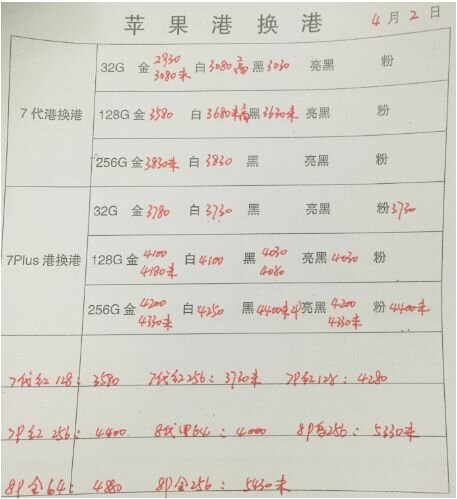 苹果港换港 4月2日
7代港换港
32G 金 2930 3080未 白 3080高 黑 3030 亮黑 粉
128G 金 3580 白 3680未高 黑 3630未 亮黑 粉
256G 金 3830未 白 3830 黑 亮黑 粉
7Plus港换港
32G 金 3780 白 3730 黑 亮黑 粉 3730
128G 金 4100 4180未 白 4100 黑 4030 4080 亮黑 4030 粉
256G 金 4200 4330未 白 4250 黑 4400未 亮黑 4200 4330未 粉 4400未
7代红128: 3580 7代红256: 3730未 7P红128: 4280
7P红256: 4400 8代甲64: 4000 8P 256: 5330未
8P金64: 4880 8P金256: 5430未